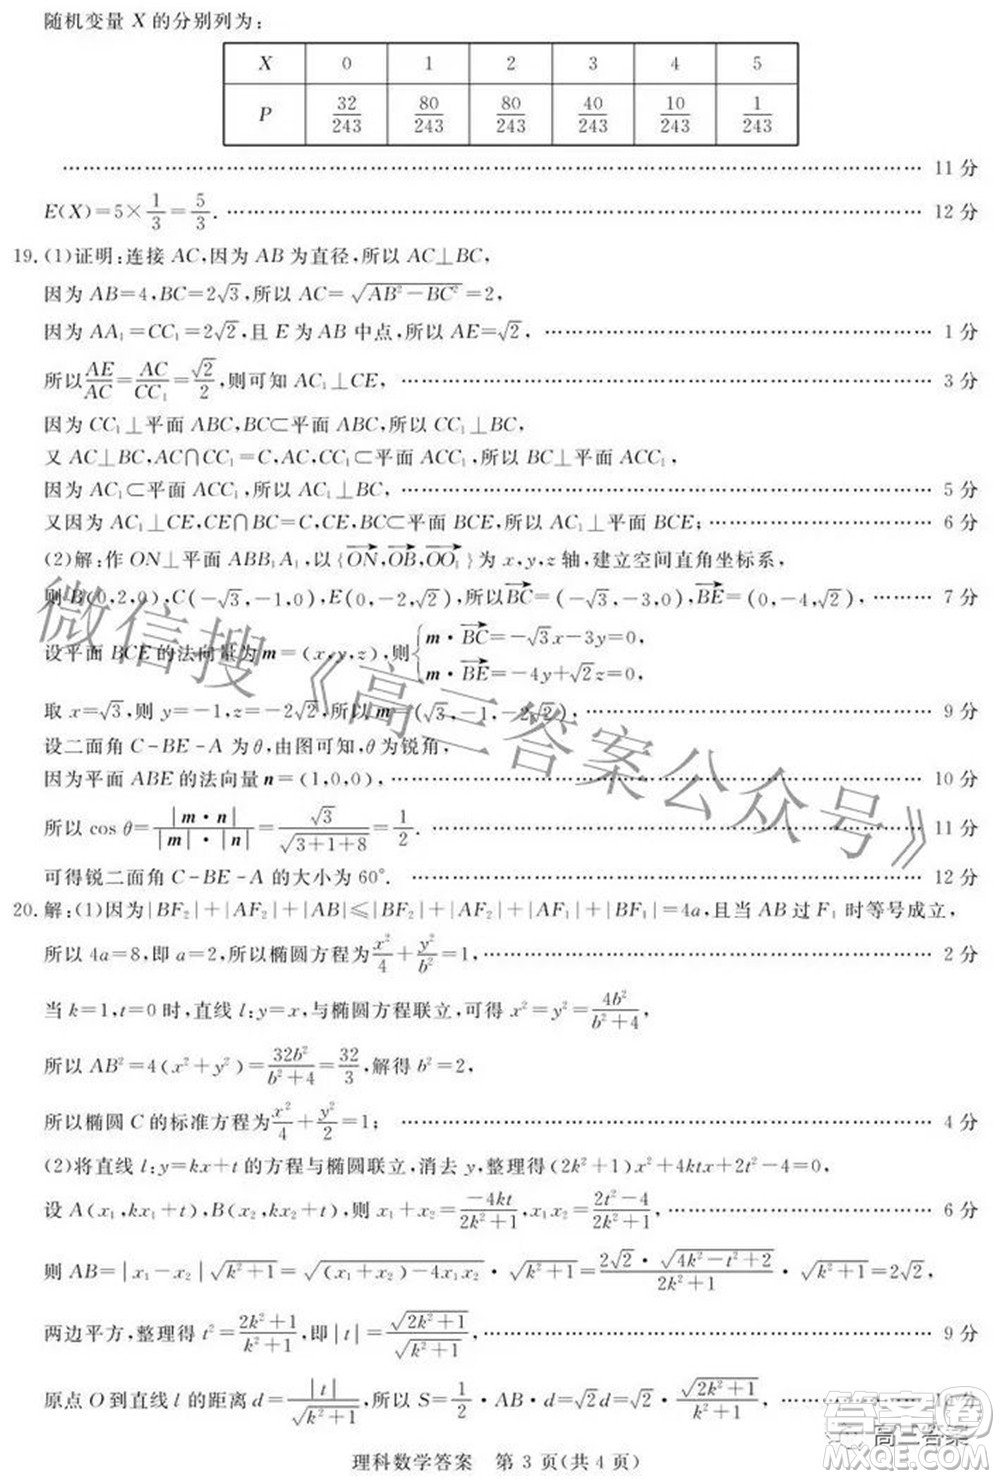 随机变量 X 的分别列为:
X 0 1 2 3 4 5
P 32/243 80/243 80/243 40/243 10/243 1/243
…………………………………………………… 11 分
E(X)=5×1/3=5/3. …………………………………………………… 12 分
19. (1)证明:连接 AC,因为 AB 为直径,所以 AC⊥BC,
因为 AB=4,BC=2√3,所以 AC=√(AB²−BC²)=2,
因为 AA₁=CC₁=2√2,且 E 为 AB 中点,所以 AE=√2, ………………………… 1 分
所以AE/AC=AC/CC₁=√2/2,则可知 AC₁⊥CE, ………………………… 3 分
因为 CC₁⊥平面 ABC,BC⊂平面 ABC,所以 CC₁⊥BC,
又 AC⊥BC,AC∩CC₁=C,AC,CC₁⊂平面 ACC₁,所以 BC⊥平面 ACC₁,
因为 AC₁⊂平面 ACC₁,所以 AC₁⊥BC, ………………………… 5 分
又因为 AC₁⊥CE,CE∩BC=C,CE,BC⊂平面 BCE,所以 AC₁⊥平面 BCE; ………………… 6 分
(2)解:作 ON⊥平面 ABB₁A₁,以{ON→,OB→,OO₁→}为 x,y,z 轴,建立空间直角坐标系,
则 B(0,2,0),C(−√3,−1,0),E(0,−2,√2),所以BC→=(−√3,−3,0),BE→=(0,−4,√2), ……… 7 分
设平面 BCE 的法向量为 m=(x,y,z),则{m·BC→=−√3x−3y=0,
m·BE→=−4y+√2z=0,
取 x=√3,则 y=−1,z=−2√2,所以 m=(√3,−1,−2√2), ………………… 9 分
设二面角 C-BE-A 为θ,由图可知,θ为锐角,
因为平面 ABE 的法向量 n=(1,0,0), ………………………… 10 分
所以 cos θ=|m·n|/(|m|·|n|)=√3/√(3+1+8)=1/2. ………………………… 11 分
可得锐二面角 C-BE-A 的大小为 60°. ………………………… 12 分
20. 解:(1)因为|BF₂|+|AF₂|+|AB|≤|BF₂|+|AF₂|+|AF₁|+|BF₁|=4a,且当 AB 过 F₁ 时等号成立,
所以 4a=8,即 a=2,所以椭圆方程为x²/4+y²/b²=1, ………………………… 2 分
当 k=1,t=0 时,直线 l:y=x,与椭圆方程联立,可得 x²=y²=4b²/(b²+4),
所以 AB²=4(x²+y²)=32b²/(b²+4)=32/3,解得 b²=2,
所以椭圆 C 的标准方程为x²/4+y²/2=1; ………………………… 4 分
(2)将直线 l:y=kx+t 的方程与椭圆联立,消去 y,整理得(2k²+1)x²+4ktx+2t²−4=0,
设 A(x₁,kx₁+t),B(x₂,kx₂+t),则 x₁+x₂=−4kt/(2k²+1),x₁x₂=(2t²−4)/(2k²+1), ………………… 6 分
则 AB=|x₁−x₂|√(k²+1)=√((x₁+x₂)−4x₁x₂)·√(k²+1)=2√2·√(4k²−t²+2)/(2k²+1)·√(k²+1)=2√2,
两边平方,整理得 t²=(2k²+1)/(k²+1),即|t|=√(2k²+1)/√(k²+1), ………………………… 9 分
原点 O 到直线 l 的距离 d=|t|/√(k²+1),所以 S=1/2·AB·d=√2d=√2·√(2k²+1)/(k²+1),
理科数学答案 第 3 页(共 4 页)
微信搜《高三答案公众号》
高三答案
答案圈